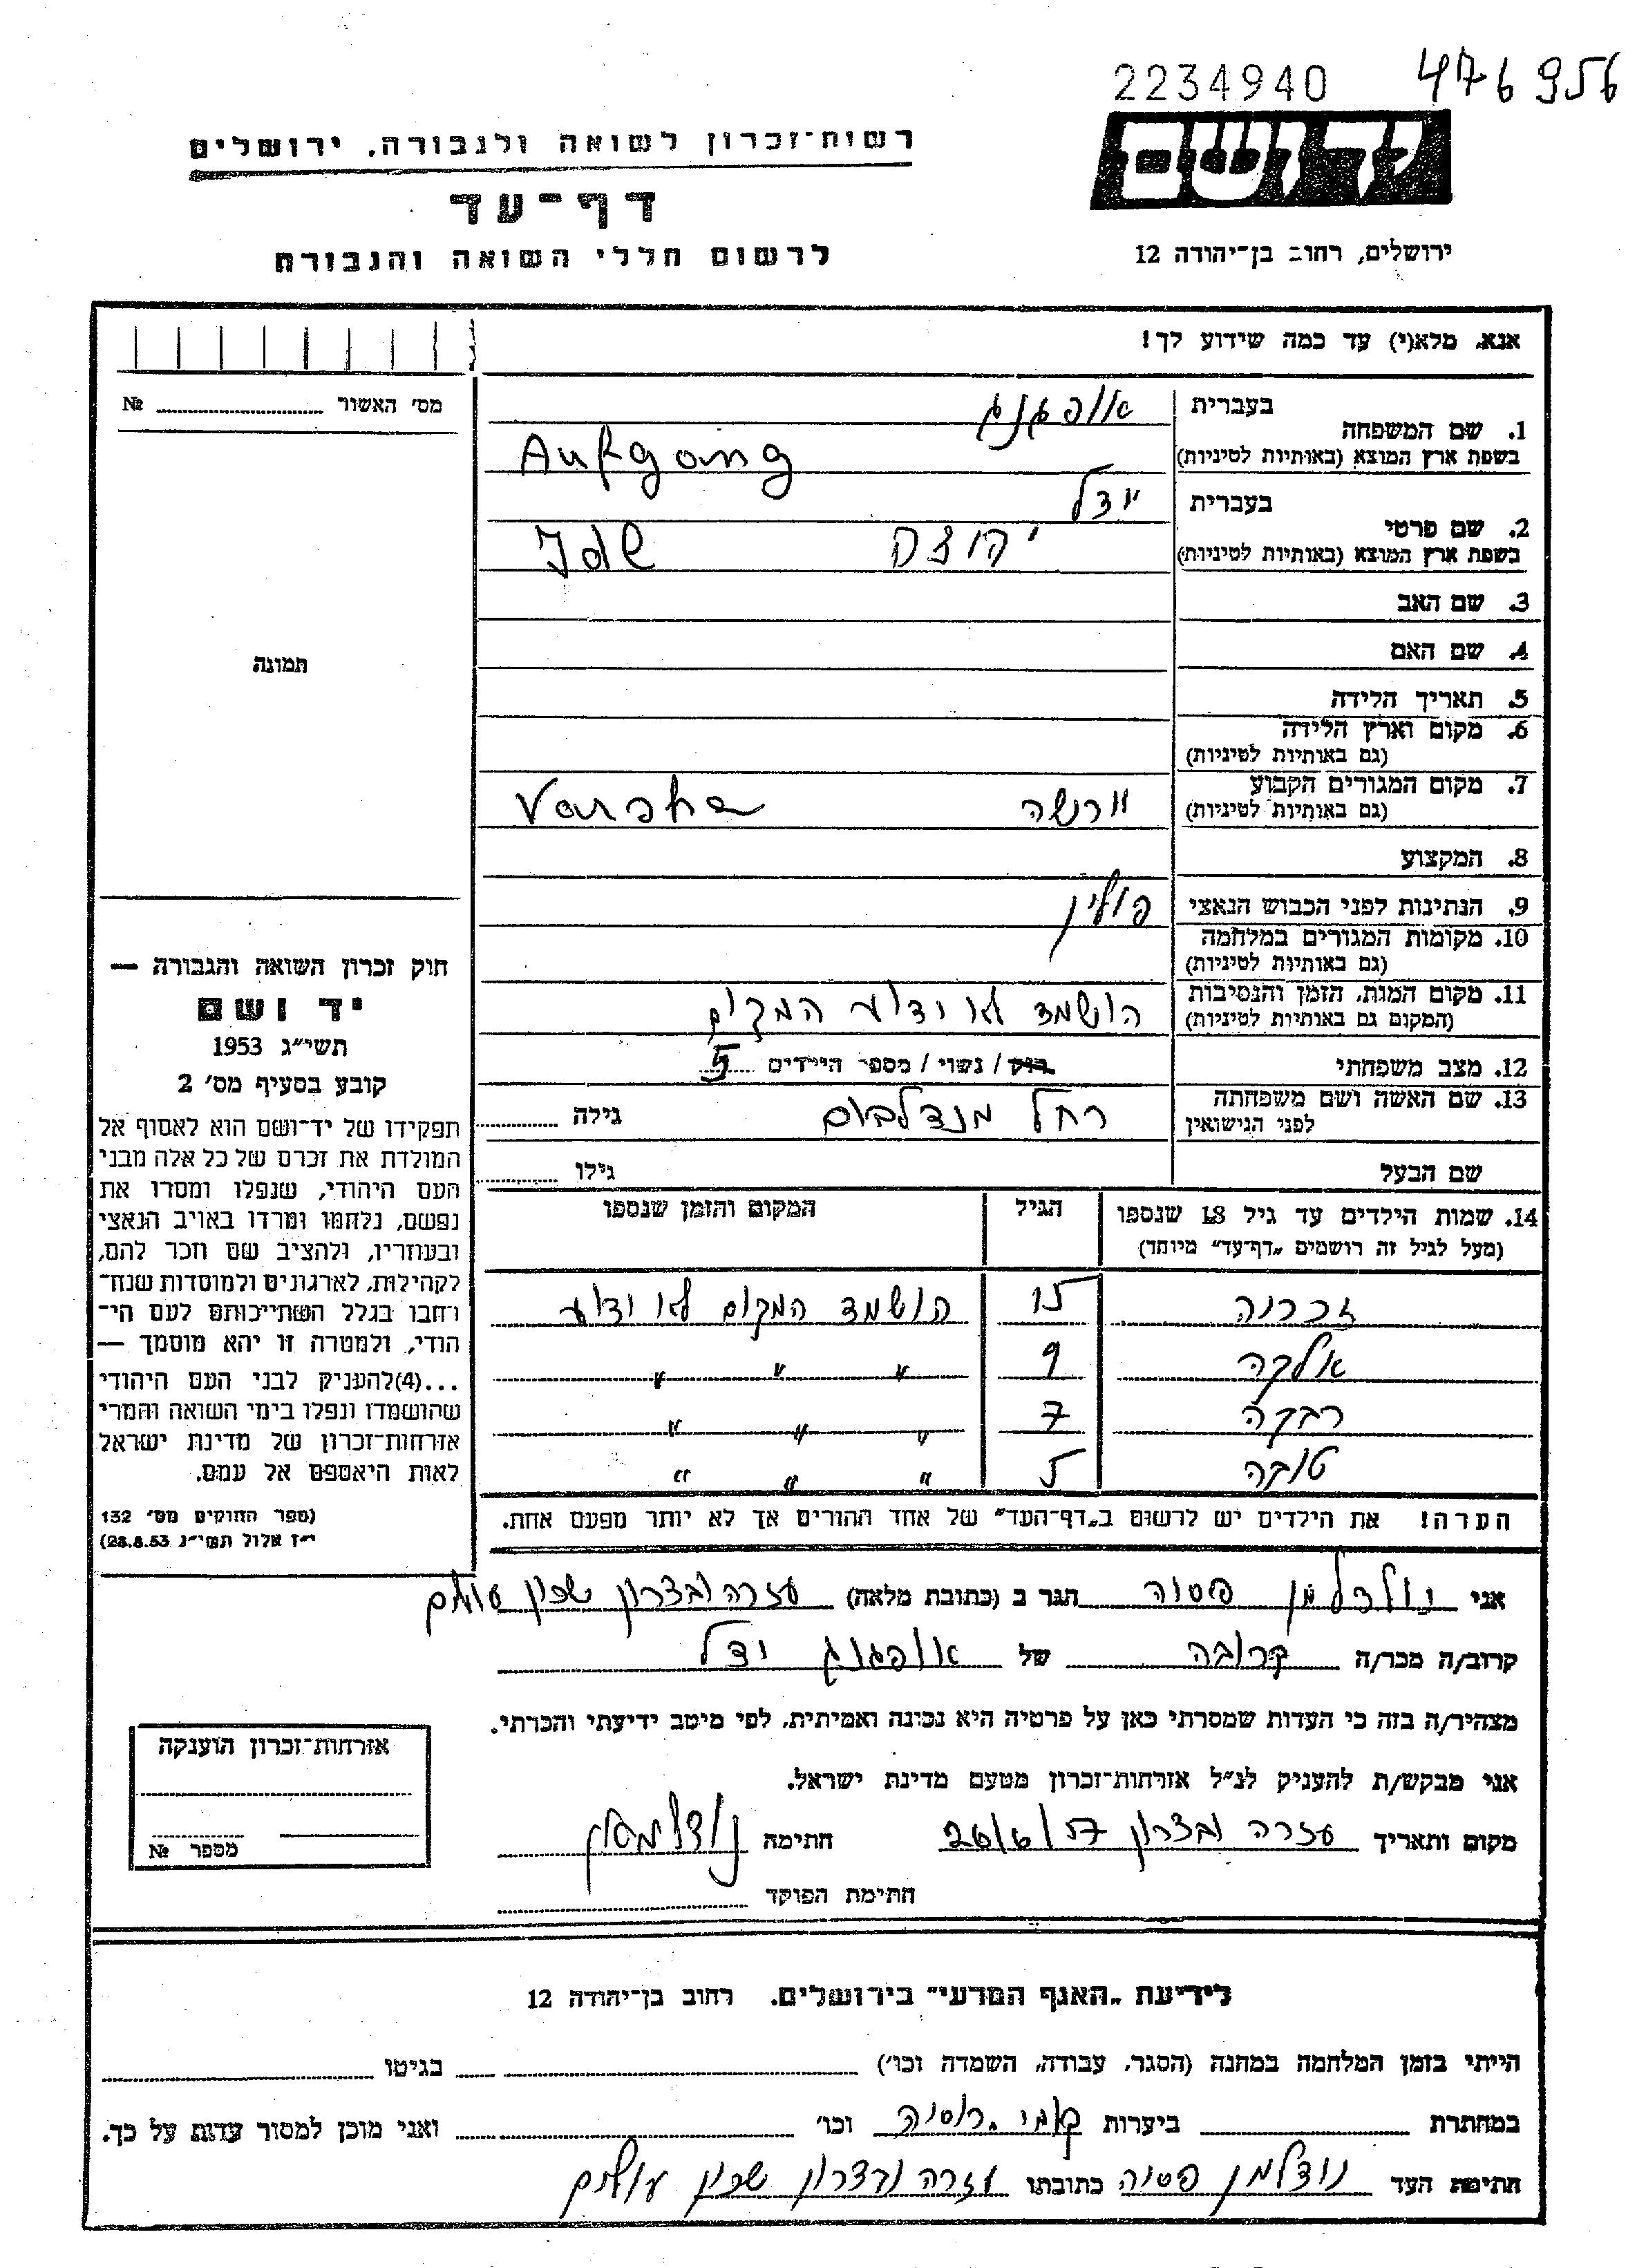 2234940 476956
יד ושם
רשות־זכרון לשואה ולגבורה, ירושלים
דף־עד
לרשום חללי השואה והגבורה
ירושלים, רחוב בן־יהודה 12
אנא, מלא(י) עד כמה שידוע לך!
מס' האשור № 
1. שם המשפחה
בעברית אופגנג
בשפת ארץ המוצא (באותיות לטיניות) Aufgang
2. שם פרטי
בעברית יודל
בשפת ארץ המוצא (באותיות לטיניות) יהודה
3. שם האב
4. שם האם
5. תאריך הלידה
6. מקום וארץ הלידה
(גם באותיות לטיניות)
7. מקום המגורים הקבוע וורשה Varsha
(גם באותיות לטיניות)
8. המקצוע
9. הנתינות לפני הכבוש הנאצי פולין
10. מקומות המגורים במלחמה
(גם באותיות לטיניות)
11. מקום המות, הזמן והנסיבות הושמד לא ידוע המקום
(המקום גם באותיות לטיניות)
12. מצב משפחתי רוק / נשוי / מספר הילדים 5
13. שם האשה ושם משפחתה רחל מנדלבוים גילה
לפני הנישואין
שם הבעל גילו
14. שמות הילדים עד גיל 18 שנספו הגיל המקום והזמן שנספו
(מעל לגיל זה רושמים „דף־עד" מיוחד)
זכריה 15 הושמד המקום לא ידוע
אלקה 9 " " "
רבקה 7 " " "
טובה 5 " " "
הערה! את הילדים יש לרשום ב„דף־העד" של אחד ההורים אך לא יותר מפעם אחת.
תמונה
חוק זכרון השואה והגבורה —
יד ושם
תשי"ג 1953
קובע בסעיף מס' 2
תפקידו של יד־ושם הוא לאסוף אל
המולדת את זכרם של כל אלה מבני
העם היהודי, שנפלו ומסרו את
נפשם, נלחמו ומרדו באויב הנאצי
ובעוזריו, ולהציב שם וזכר להם,
לקהילות, לארגונים ולמוסדות שנח־
רבו בגלל השתייכותם לעם הי־
הודי, ולמטרה זו יהא מוסמך —
...(4)להעניק לבני העם היהודי
שהושמדו ונפלו בימי השואה והמרי
אזרחות־זכרון של מדינת ישראל
לאות היאספם אל עמם.
(ספר החוקים מס' 132
י"ז אלול תשי"ג 28.8.53)
אני נודלמן פסיה הגר ב (כתובת מלאה) עזרה ובצרון שכון עולים
קרוב/ה מכר/ה קרובה של אופגנג יודל
מצהיר/ה בזה כי העדות שמסרתי כאן על פרטיה היא נכונה ואמיתית, לפי מיטב ידיעתי והכרתי.
אני מבקש/ת להעניק לנ"ל אזרחות־זכרון מטעם מדינת ישראל.
מקום ותאריך עזרה ובצרון 26/6/57 חתימה נודלמן
חתימת הפוקד
אזרחות־זכרון הוענקה
מספר №
לידיעת „האגף המדעי" בירושלים, רחוב בן־יהודה 12
הייתי בזמן המלחמה במחנה (הסגר, עבודה, השמדה וכו') בגיטו
במחתרת ביערות רוסיה וכו' ואני מוכן למסור עדות על כך.
חתימת העד נודלמן פסיה כתובתו עזרה ובצרון שכון עולים